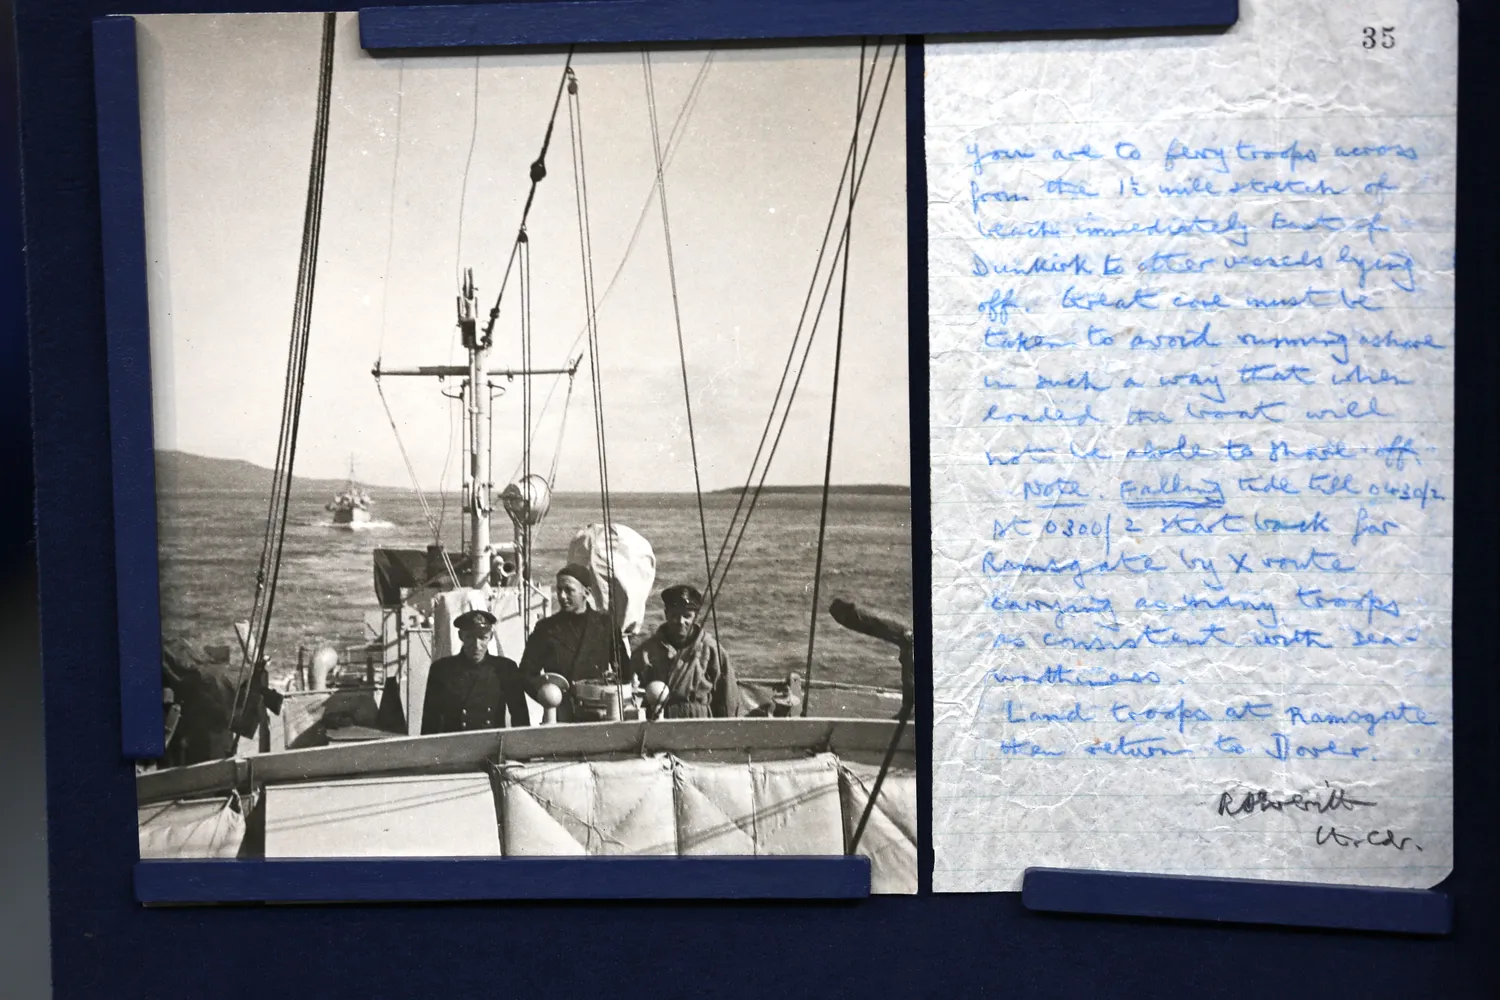 35
You are to ferry troops across
from the 1½ mile stretch of
beach immediately East of
Dunkirk to other vessels lying
off. Great care must be
taken to avoid running ashore
in such a way that when
loaded the boat will
not be able to shove off.
Note. Falling tide till 0430/2.
At 0300/2 start back for
Ramsgate by X route
carrying as many troops
as consistent with sea-
worthiness.
Land troops at Ramsgate
then return to Dover.
Lt. Cdr.